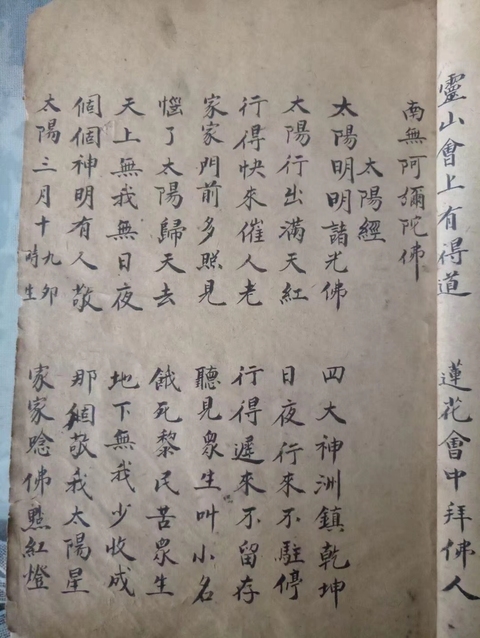 靈山會上有得道 蓮花會中拜佛人
南無阿彌陀佛
太陽經
太陽明明諸光佛 四大神洲鎮乾坤
太陽行出滿天紅 日夜行來不駐停
行得快來催人老 行得遲來不留存
家家門前多照見 聽見眾生叫小名
惱了太陽歸天去 餓死黎民苦眾生
天上無我無日夜 地下無我少收成
個個神明有人敬 那個敬我太陽星
太陽三月十九卯時生 家家唸佛點紅燈